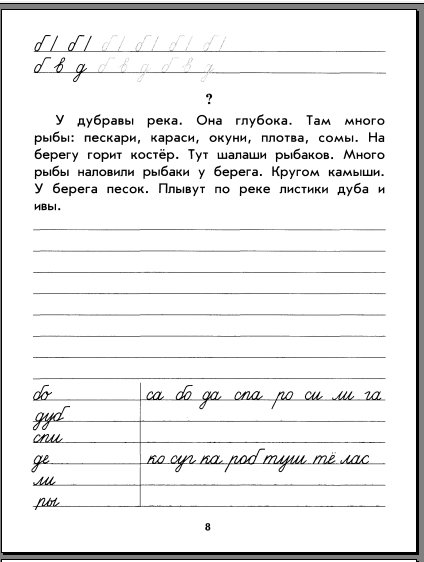 б l б l б l б l б l б l
б в д б в д б в д
?
У дубравы река. Она глубока. Там много
рыбы: пескари, караси, окуни, плотва, сомы. На
берегу горит костёр. Тут шалаши рыбаков. Много
рыбы наловили рыбаки у берега. Кругом камыши.
У берега песок. Плывут по реке листики дуба и
ивы.
бо са бо да спа ро си ли га
дуб
спи
де ко суг ка роб туш тё лас
ли
ры
8